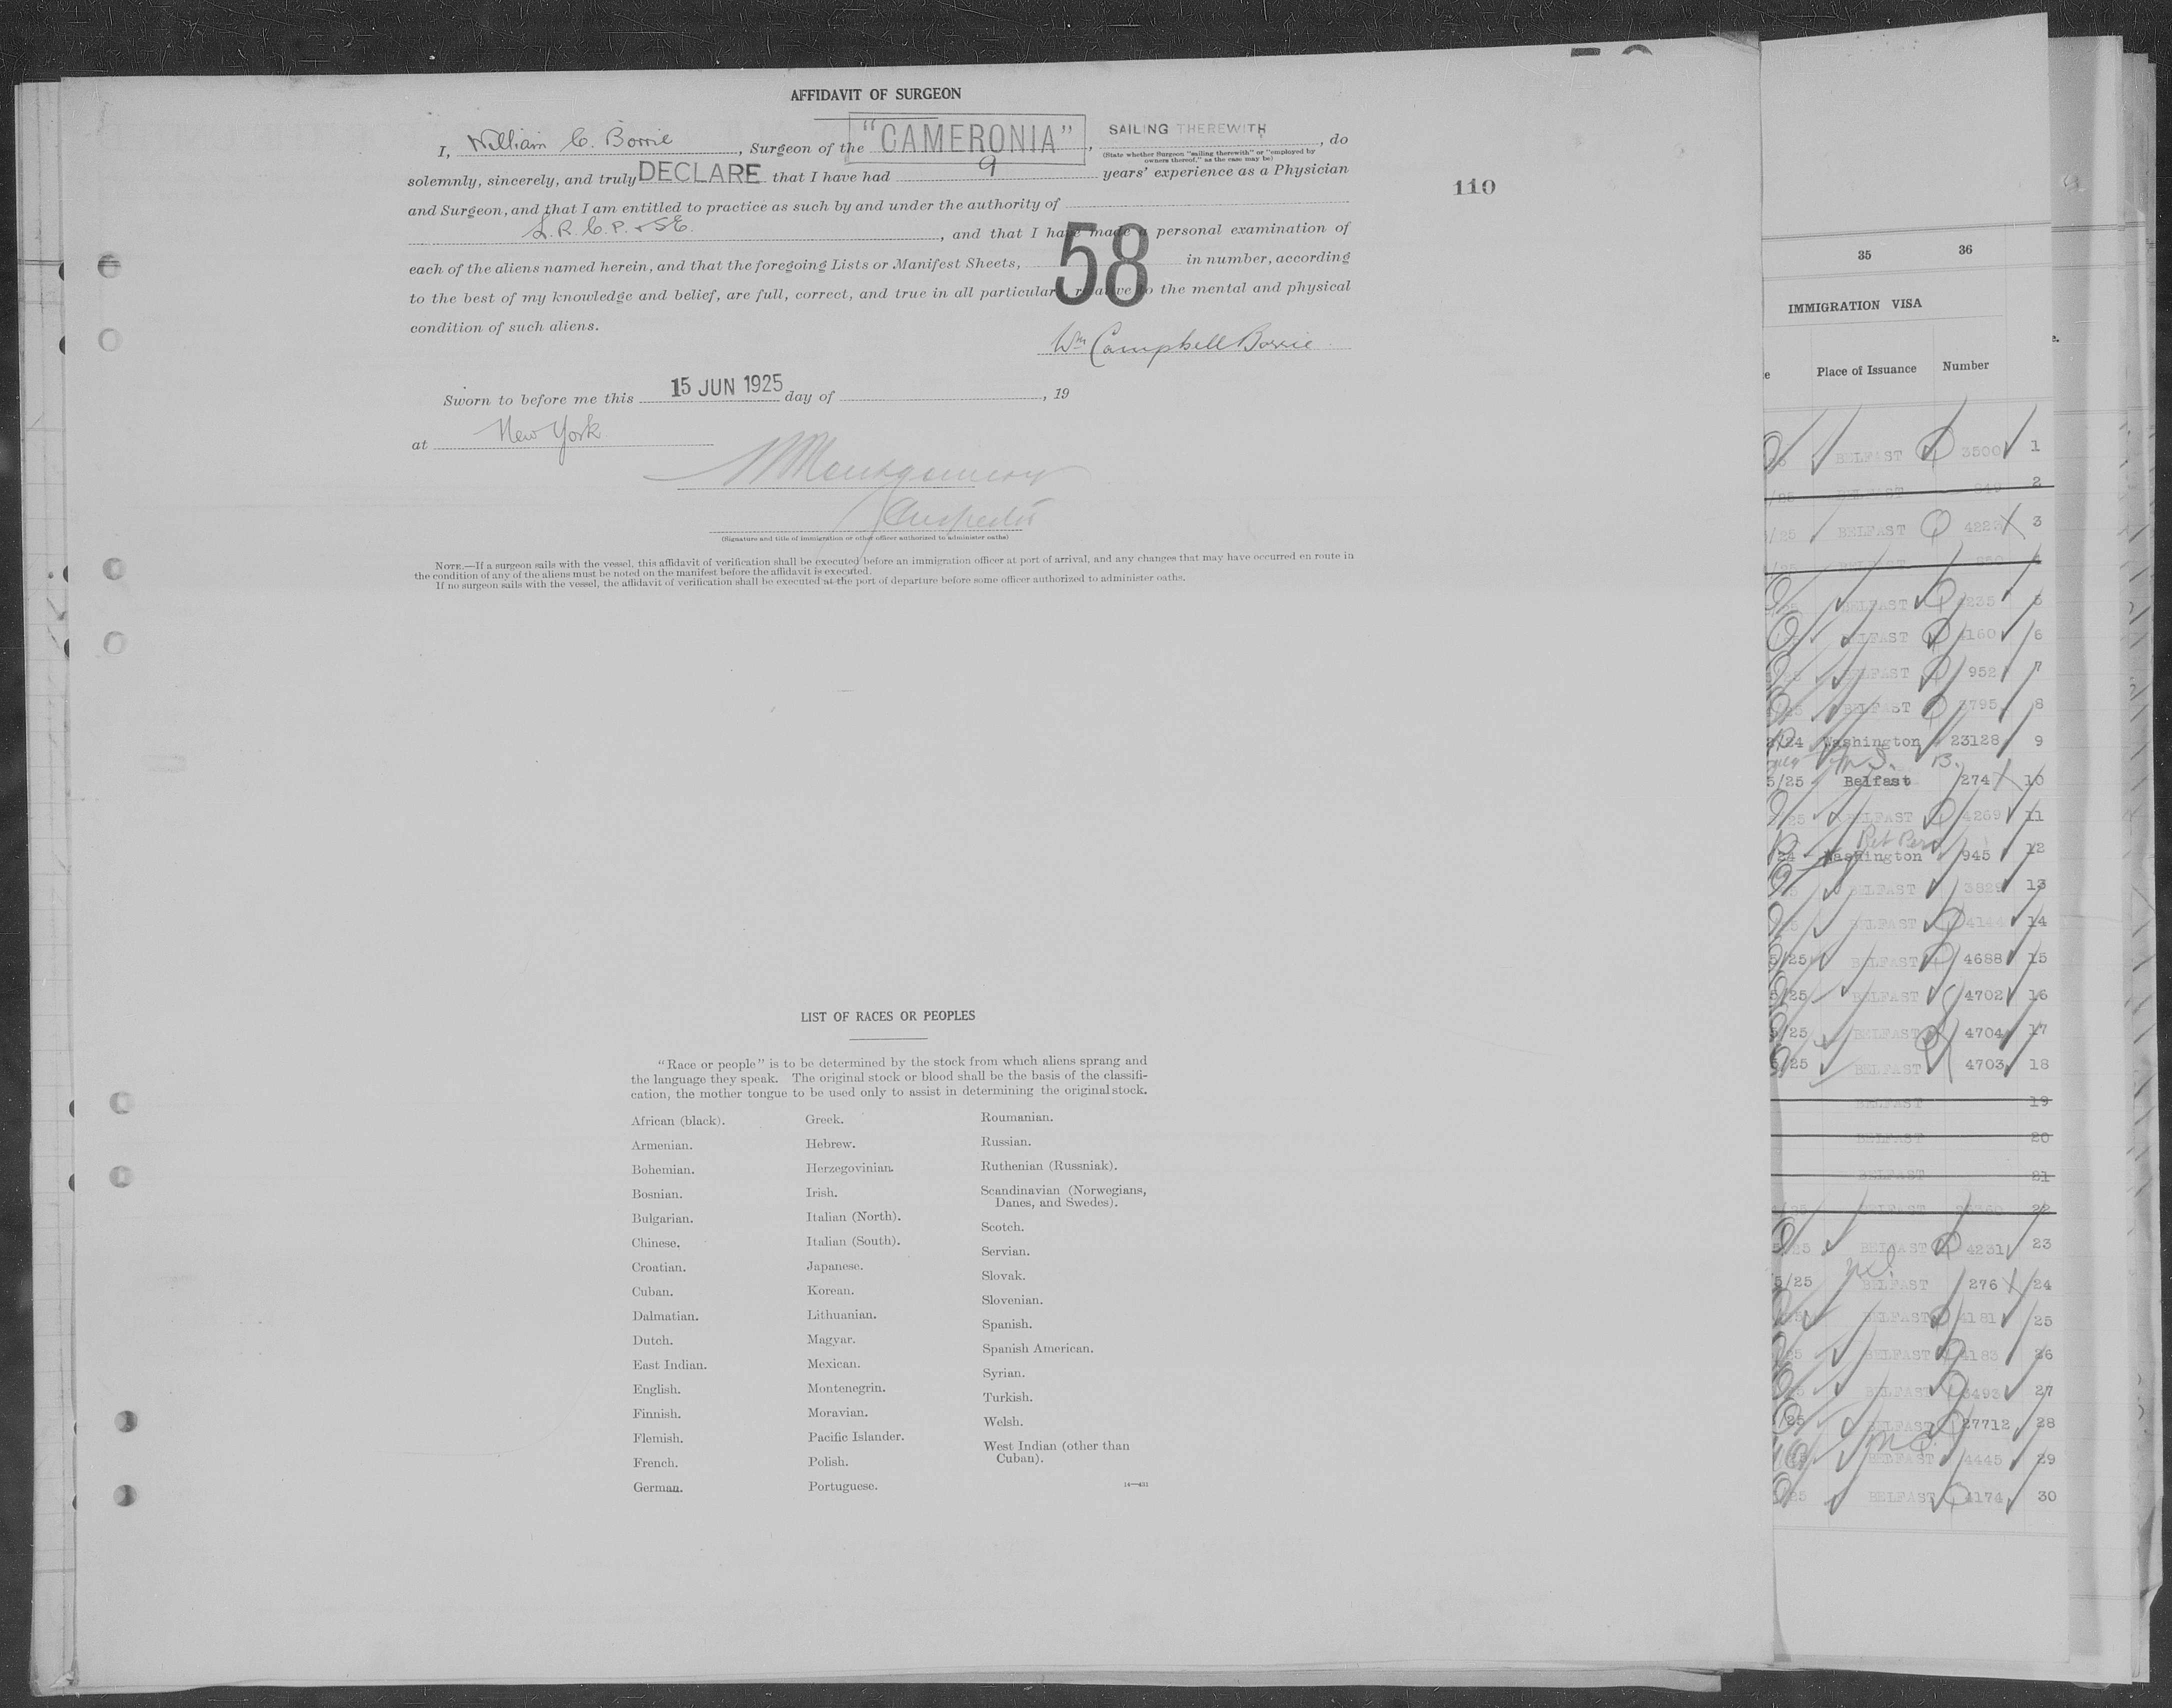 AFFIDAVIT OF SURGEON
I, William C. Borrie, Surgeon of the "CAMERONIA", SAILING THEREWITH, do
(State whether Surgeon "sailing therewith" or "employed by
owners thereof," as the case may be)
solemnly, sincerely, and truly DECLARE that I have had 9 years' experience as a Physician
110
and Surgeon, and that I am entitled to practice as such by and under the authority of
L.R.C.P. & S.E., and that I have made a personal examination of
each of the aliens named herein, and that the foregoing Lists or Manifest Sheets, 58 in number, according
to the best of my knowledge and belief, are full, correct, and true in all particulars relative to the mental and physical
condition of such aliens.
Wm Campbell Borrie
Sworn to before me this 15 JUN 1925 day of , 19
at New York
Montgomery
Inspector
(Signature and title of immigration or other officer authorized to administer oaths)
NOTE.—If a surgeon sails with the vessel, this affidavit of verification shall be executed before an immigration officer at port of arrival, and any changes that may have occurred en route in
the condition of any of the aliens must be noted on the manifest before the affidavit is executed.
If no surgeon sails with the vessel, the affidavit of verification shall be executed at the port of departure before some officer authorized to administer oaths.
LIST OF RACES OR PEOPLES
"Race or people" is to be determined by the stock from which aliens sprang and
the language they speak. The original stock or blood shall be the basis of the classifi-
cation, the mother tongue to be used only to assist in determining the original stock.
African (black).
Armenian.
Bohemian.
Bosnian.
Bulgarian.
Chinese.
Croatian.
Cuban.
Dalmatian.
Dutch.
East Indian.
English.
Finnish.
Flemish.
French.
German.
Greek.
Hebrew.
Herzegovinian.
Irish.
Italian (North).
Italian (South).
Japanese.
Korean.
Lithuanian.
Magyar.
Mexican.
Montenegrin.
Moravian.
Pacific Islander.
Polish.
Portuguese.
Roumanian.
Russian.
Ruthenian (Russniak).
Scandinavian (Norwegians,
Danes, and Swedes).
Scotch.
Servian.
Slovak.
Slovenian.
Spanish.
Spanish American.
Syrian.
Turkish.
Welsh.
West Indian (other than
Cuban).
14—431
35 36
IMMIGRATION VISA
Place of Issuance Number
BELFAST 3500 1
BELFAST 2
/25 BELFAST 3
BELFAST 4
BELFAST 5
BELFAST 4160 6
BELFAST 952 7
BELFAST 3795 8
/24 Washington 23128 9
5/25 Belfast 274 10
/25 BELFAST 4269 11
Ret Per
24 Washington 945 12
BELFAST 3829 13
BELFAST 14
5/25 BELFAST 4688 15
5/25 BELFAST 4702 16
5/25 BELFAST 4704 17
/25 BELFAST 4703 18
BELFAST 19
BELFAST 20
BELFAST 21
BELFAST 22
/25 BELFAST 4231 23
5/25 BELFAST 276 24
BELFAST 4181 25
BELFAST 4183 26
BELFAST 3493 27
/25 BELFAST 27712 28
BELFAST 4445 29
/25 BELFAST 4174 30